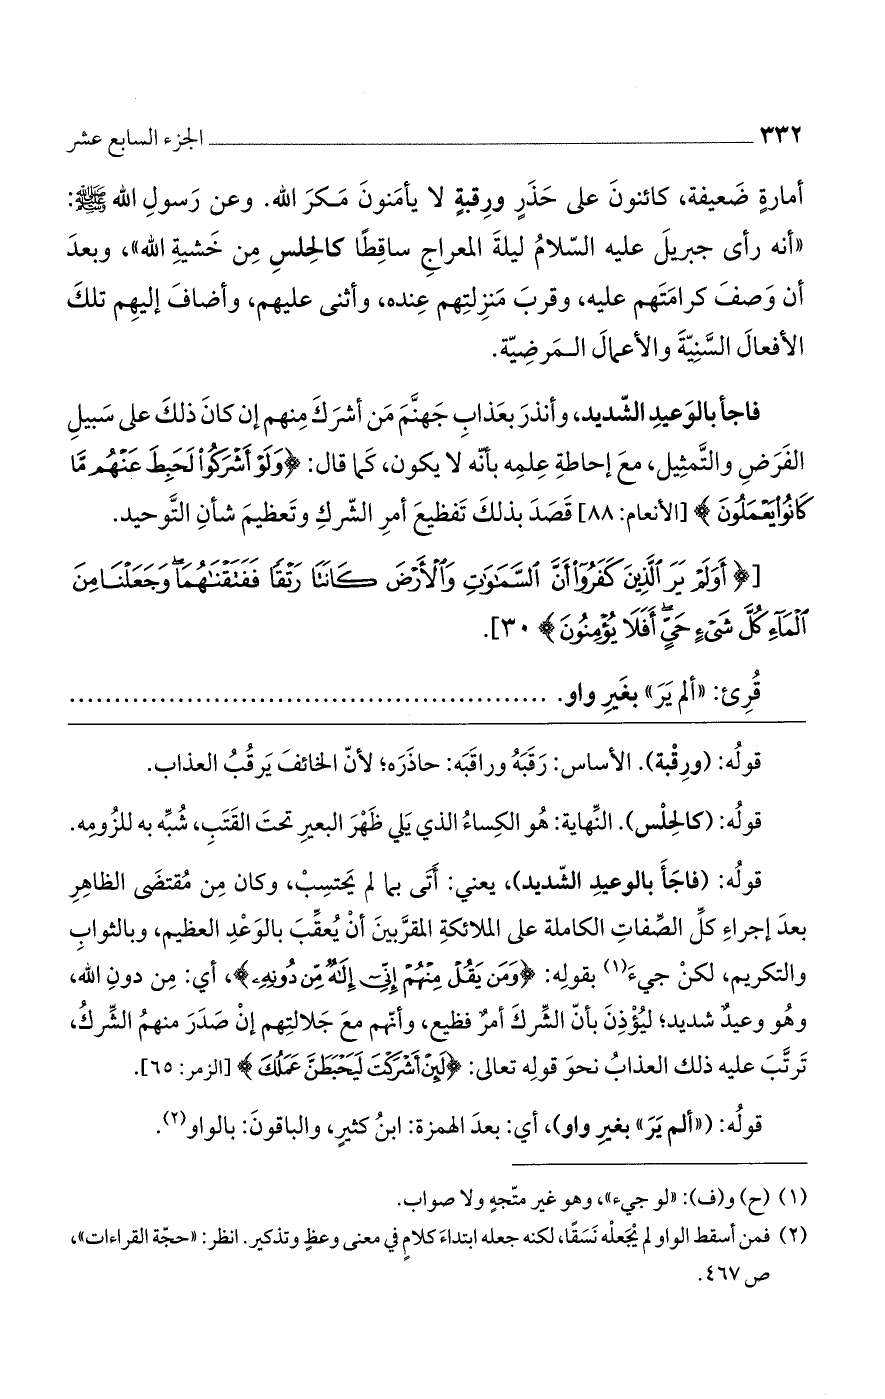 ٣٣٢ الجزء السابع عشر
أمارةٍ ضَعيفة، كائنونَ على حَذَرٍ ورِقبةٍ لا يأمَنونَ مَكرَ الله. وعن رَسولِ الله ﷺ:
«أنه رأى جبريلَ عليه السّلامُ ليلةَ المعراجِ ساقِطًا كالحِلسِ مِن خَشيةِ الله»، وبعدَ
أن وَصفَ كرامَتَهم عليه، وقربَ مَنزِلتِهم عِنده، وأثنى عليهم، وأضافَ إليهِم تلكَ
الأفعالَ السَّنِيّةَ والأعمالَ المَرضِيّة.
فاجأ بالوَعيدِ الشّديد، وأنذرَ بعَذابِ جَهنَّمَ مَن أشرَكَ مِنهم إن كانَ ذلكَ على سَبيلِ
الفَرَضِ والتَّمثِيل، معَ إحاطةِ عِلمِه بأنّه لا يكون، كَما قال: ﴿وَلَوْ أَشْرَكُوا۟ لَحَبِطَ عَنْهُم مَّا
كَانُوا۟ يَعْمَلُونَ﴾ [الأنعام: ٨٨] قَصَدَ بذلكَ تَفظيعَ أمرِ الشّركِ وتَعظيمَ شأنِ التَّوحيد.
[﴿أَوَلَمْ يَرَ ٱلَّذِينَ كَفَرُوٓا۟ أَنَّ ٱلسَّمَٰوَٰتِ وَٱلْأَرْضَ كَانَتَا رَتْقًا فَفَتَقْنَٰهُمَا ۖ وَجَعَلْنَا مِنَ
ٱلْمَآءِ كُلَّ شَىْءٍ حَىٍّ ۖ أَفَلَا يُؤْمِنُونَ﴾ ٣٠].
قُرِئ: «ألم يَرَ» بغَيرِ واو. ......................................................
قولُه: (ورِقْبة). الأساس: رَقَبَهُ وراقَبَه: حاذَرَه؛ لأنّ الخائفَ يَرقُبُ العذاب.
قولُه: (كالحِلْس). النِّهاية: هُو الكِساءُ الذي يَلي ظَهْرَ البعيرِ تحتَ القَتَبِ، شُبِّه به للزُومِه.
قولُه: (فاجَأَ بالوعيدِ الشّديد)، يعني: أَتَى بما لم يَحتسِبْ، وكان مِن مُقتضَى الظاهرِ
بعدَ إجراءِ كلِّ الصِّفاتِ الكاملة على الملائكةِ المقرَّبينَ أنْ يُعقِّبَ بالوَعْدِ العظيم، وبالثوابِ
والتكريم، لكنْ جيءَ(١) بقولِه: ﴿وَمَن يَقُلْ مِنْهُمْ إِنِّىٓ إِلَٰهٌ مِّن دُونِهِۦ﴾، أي: مِن دونِ الله،
وهُو وعيدٌ شديد؛ ليُؤْذِنَ بأنّ الشِّركَ أمرٌ فظيع، وأنّهم معَ جَلالتِهم إنْ صَدَرَ منهمُ الشِّركُ،
تَرتَّبَ عليه ذلك العذابُ نحوَ قولِه تعالى: ﴿لَئِنْ أَشْرَكْتَ لَيَحْبَطَنَّ عَمَلُكَ﴾ [الزمر: ٦٥].
قولُه: («ألم يَرَ» بغيرِ واو)، أي: بعدَ الهمزة: ابنُ كثيرٍ، والباقونَ: بالواو(٢).
(١) (ح) و(ف): «لو جيء»، وهو غير متّجهٍ ولا صواب.
(٢) فمن أسقط الواو لم يُجعلْه نَسَقًا، لكنه جعله ابتداءَ كلامٍ في معنى وعظٍ وتذكير. انظر: «حجّة القراءات»،
ص ٤٦٧.